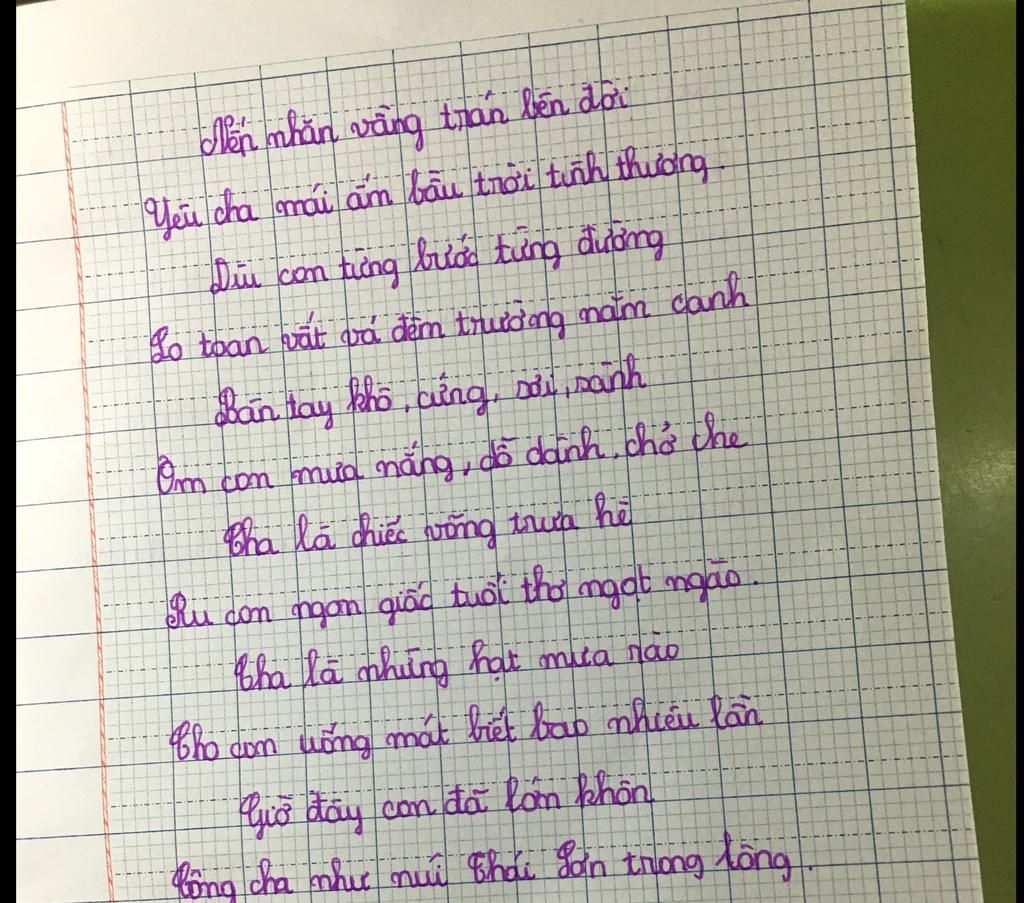 Nến nhăn vầng trán bên đời
Yêu cha mái ấm bầu trời tình thương.
Dìu con từng bước từng đường
Lo toan vất vả đêm trường năm canh
Bàn tay khô, cứng, sới, sành
Ôm con mưa nắng, dỗ dành, chở che
Cha là chiếc võng trưa hè
Ru con ngon giấc tuổi thơ ngọt ngào.
Cha là những hạt mưa rào
Cho con uống mát biết bao nhiêu lần
Giờ đây con đã lớn khôn
Công cha như núi Thái Sơn trong lòng.